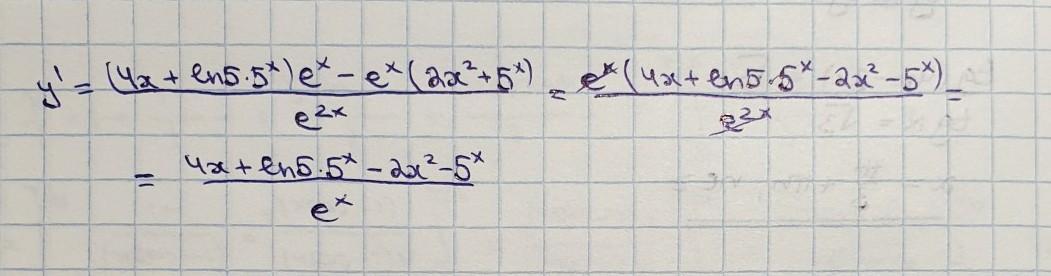 y' = \frac{(4x + ln5·5^x)e^x − e^x(2x^2+5^x)}{e^{2x}} = \frac{e^x(4x+ln5·5^x−2x^2−5^x)}{e^{2x}} =
= \frac{4x+ln5·5^x−2x^2−5^x}{e^x}